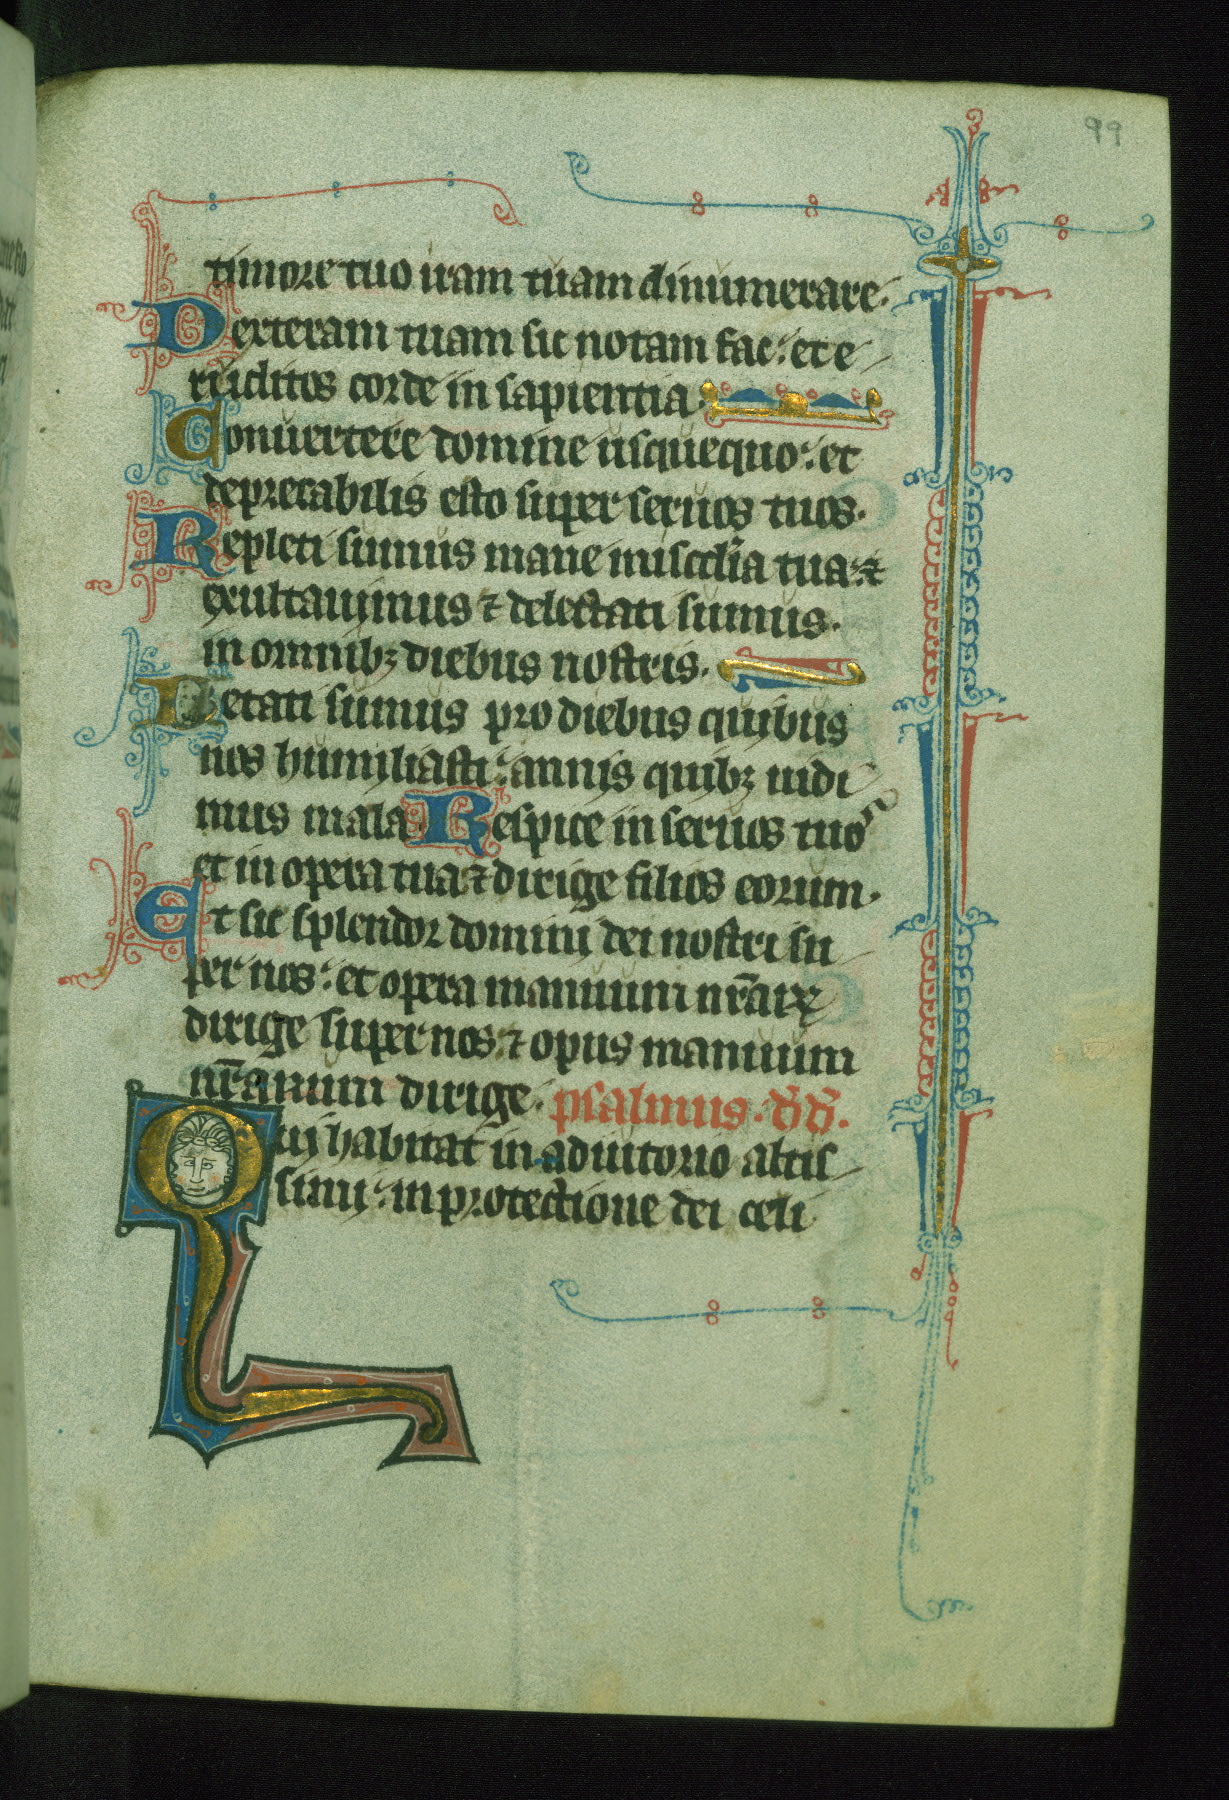 99
timore tuo iram tuam dinumerare.
Dexteram tuam sic notam fac: et e
ruditos corde in sapientia.
Conuertere domine usquequo: et
deprecabilis esto super seruos tuos.
Repleti sumus mane mīscdīa tua: ⁊
exultauimus ⁊ delectati sumus.
in omnibꝫ diebus nostris.
Letati sumus pro diebus quibus
nos humiliasti: annis quibꝫ uidi
mus mala. Respice in seruos tuos
et in opera tua ⁊ dirige filios eorum.
Et sit splendor domini dei nostri su
per nos: et opera manuum nr̄aꝝ
dirige super nos ⁊ opus manuum
nr̄arum dirige. psalmus. dd̄.
Qui habitat in adiutorio altis
simi: in protectione dei celi